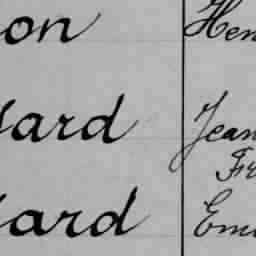 on Hen
ard Jean
Fr
ard Emi